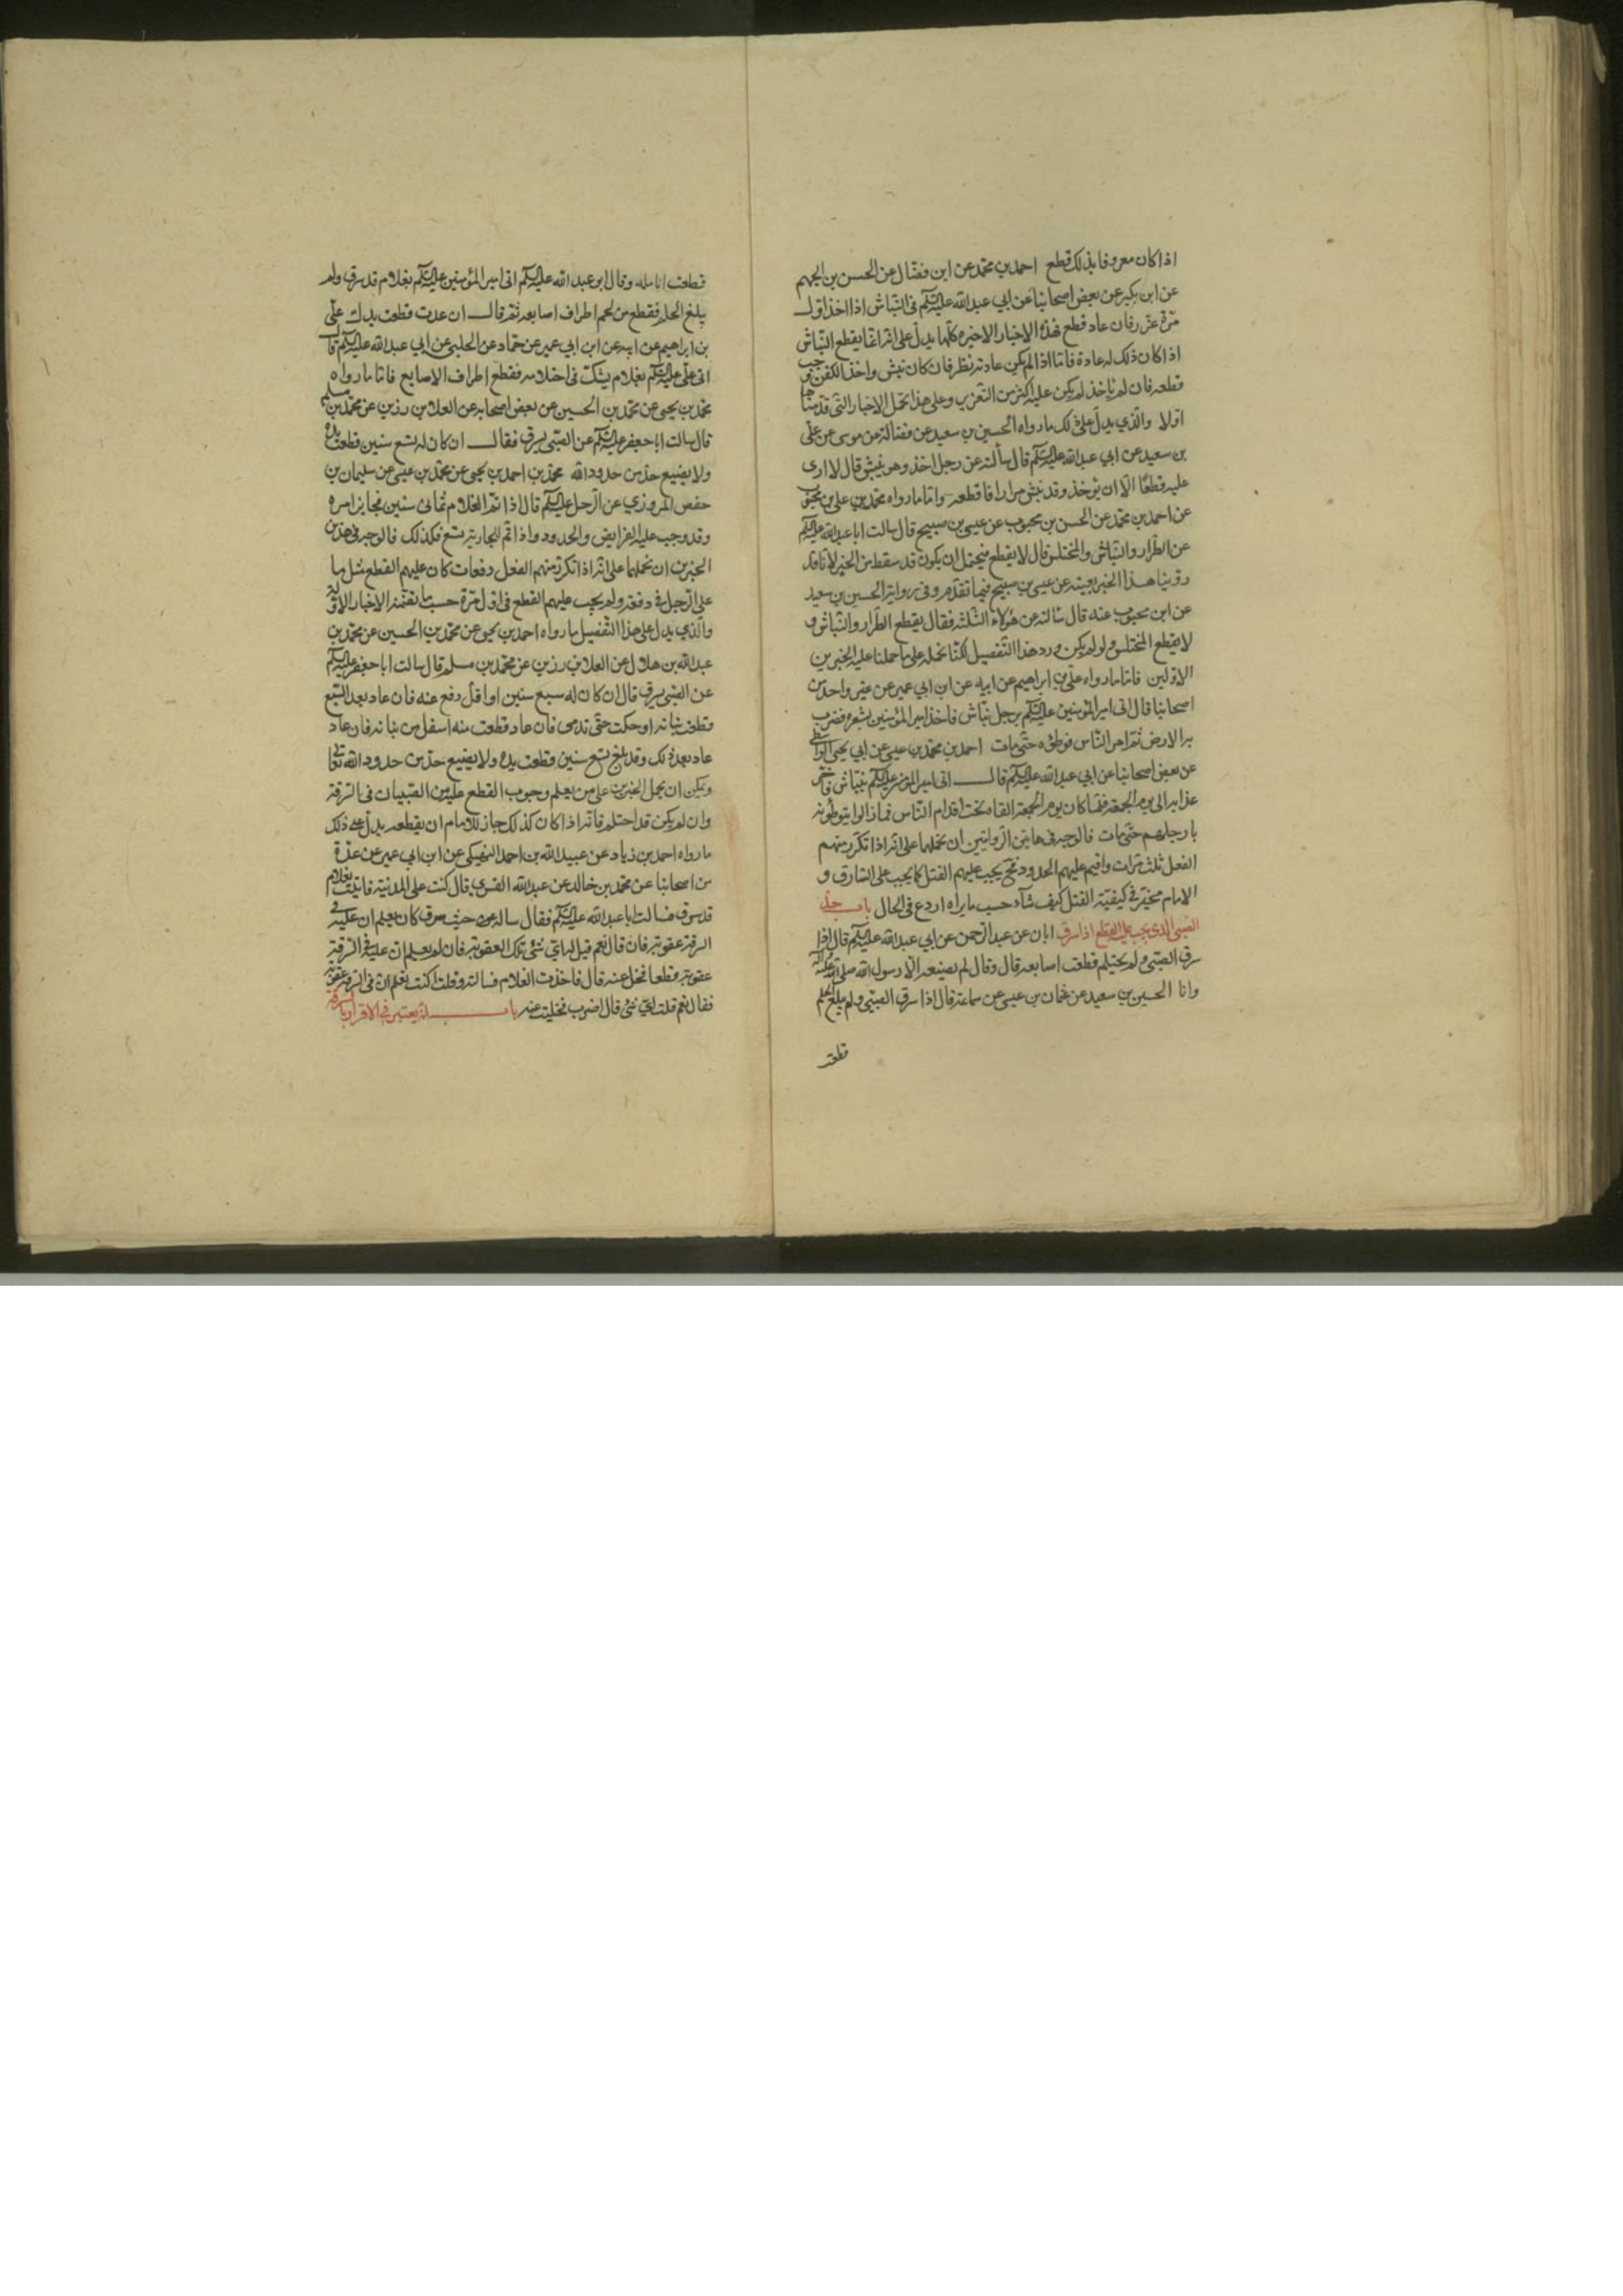 اذا كان معروفا بذلك قطع احمد بن محمد عن ابن فضال عن الحسن بن الجهم
عن ابن بكير عن بعض اصحابنا عن ابي عبد الله عليه السلم في النباش اذا اخذ اول
مرة عزر فان عاد قطع فهذه الاخبار الاخيرة كلها يدل على انه انما يقطع النباش
اذا كان ذلك له عادة فاما اذا لم يكن عادته نظر فان كان نبش واخذ الكفن وجب
قطعه فان لم ياخذ لم يكن عليه اكثر من التعزير وعلى هذا نحمل الاخبار التي قدمناها
اولا والذي يدل على ذلك ما رواه الحسين بن سعيد عن فضالة عن موسى عن علي
بن سعيد عن ابي عبد الله عليه السلم قال سألته عن رجل اخذ وهو ينبش قال لا ارى
عليه قطعا الا ان يؤخذ وقد نبش مرارا فاقطعه واما ما رواه محمد بن علي بن محبوب
عن احمد بن محمد عن الحسن بن محبوب عن عيسى بن صبيح قال سالت ابا عبد الله عليه السلم
عن الطرار والنباش والمختلس قال لا يقطع فيحتمل ان يكون قد سقط من الخبر لانا قد
روينا هذا الخبر بعينه عن عيسى بن صبيح فيما تقدم وفي رواية الحسين بن سعيد
عن ابن محبوب عنه قال سالته عن هؤلاء الثلثة فقال يقطع الطرار والنباش و
لا يقطع المختلس ولو لم يكن ورد هذا التفصيل لكنا نحمله على ما حملنا عليه الخبرين
الاولين فاما ما رواه علي بن ابراهيم عن ابيه عن ابن ابي عمير عن غير واحد من
اصحابنا قال اتى امير المؤمنين عليه السلم برجل نباش فاخذ امير المؤمنين بشعره فضرب
به الارض ثم امر الناس فوطؤه حتى مات احمد بن محمد بن عيسى عن ابي يحيى الواسطي
عن بعض اصحابنا عن ابي عبد الله عليه السلم قال اتى امير المؤمنين عليه السلم بنباش فاخر
عذابه الى يوم الجمعة فلما كان يوم الجمعة القاه تحت اقدام الناس فما زالوا يتوطونه
بارجلهم حتى مات فالوجه في هاتين الروايتين ان نحملهما على انه اذا تكرر منهم
الفعل ثلث مرات واقيم عليهم الحدود فح يجب عليهم القتل كما يجب على السارق و
الامام مخير في كيفية القتل كيف شآء حسب ما يراه اردع في الحال باب حد
الصبي الذي يجب عليه القطع اذا سرق ابان عن عبد الرحمن عن ابي عبد الله عليه السلم قال اذا
سرق الصبي ولم يحتلم قطعت اصابعه قال وقال لم يصنعه الا رسول الله صلى الله عليه وآله
وانا الحسين بن سعيد عن عثمان بن عيسى عن سماعة قال اذا سرق الصبي ولم يبلغ الحلم
قطعت
قطعت انامله وقال ابو عبد الله عليه السلم اتى امير المؤمنين عليه السلم بغلام قد سرق ولم
يبلغ الحلم فقطع من لحم اطراف اصابعه ثم قال ان عدت قطعت يدك علي
بن ابراهيم عن ابيه عن ابن ابي عمير عن حماد عن الحلبي عن ابي عبد الله عليه السلم قال
اتى علي عليه السلم بغلام يشك في احتلامه فقطع اطراف الاصابع فاما ما رواه
محمد بن يحيى عن محمد بن الحسين عن بعض اصحابه عن العلا بن رزين عن محمد بن مسلم
قال سالت ابا جعفر عليه السلم عن الصبي يسرق فقال ان كان له تسع سنين قطعت يده
ولا يضيع حد من حدود الله محمد بن احمد بن يحيى عن محمد بن عيسى عن سليمان بن
حفص المروزي عن الرجل عليه السلم قال اذا تم الغلام ثماني سنين فجايز امره
وقد وجب عليه الفرايض والحدود واذا تم للجارية تسع فكذلك فالوجه في هذين
الخبرين ان نحملهما على انه اذا تكرر منهم الفعل دفعات كان عليهم القطع مثل ما
على الرجل في دفعة ولم يجب عليهم القطع في اول مرة حسب ما تضمنه الاخبار الاولة
والذي يدل على هذا التفصيل ما رواه احمد بن يحيى عن محمد بن الحسين عن محمد بن
عبد الله بن هلال عن العلا بن رزين عن محمد بن مسلم قال سالت ابا جعفر عليه السلم
عن الصبي يسرق قال ان كان له سبع سنين او اقل رفع عنه فان عاد بعد السبع
قطعت بنانه او حكت حتى تدمى فان عاد قطعت منه اسفل من بنانه فان عاد
عاد بعد ذلك وقد بلغ تسع سنين قطعت يده ولا يضيع حد من حدود الله تعالى
ويمكن ان يحمل الخبرين على من يعلم وجوب القطع عليه من الصبيان في السرقة
وان لم يكن قد احتلم فانه اذا كان كذلك جاز للامام ان يقطعه يدل على ذلك
ما رواه احمد بن زياد عن عبيد الله بن احمد النهيكي عن ابن ابي عمير عن عدة
من اصحابنا عن محمد بن خالد عن عبد الله القسري قال كنت على المدينة فاتيت بغلام
قد سرق فسالت ابا عبد الله عليه السلم فقال ساله حيث سرق كان يعلم ان عليه في
السرقة عقوبة فان قال نعم قيل له اي شئ تلك العقوبة فان لم يعلم ان عليه في السرقة
عقوبة قطعا فخل عنه قال فاخذت الغلام فسالته وقلت اكنت تعلم ان في السرقة عقوبة
فقال نعم قلت اي شئ قال الضرب فخليت عنه باب انه يعتبر في الاقرار بالسرقة